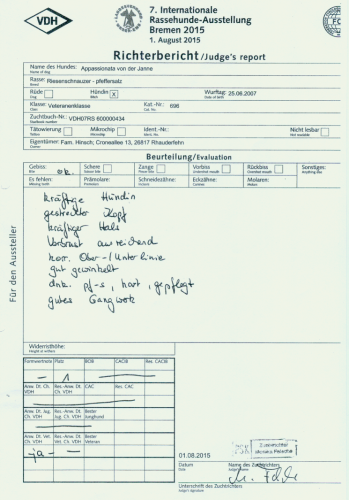 VDH
7. Internationale
Rassehunde-Ausstellung
Bremen 2015
1. August 2015
FCI
Richterbericht/Judge's report
Name des Hundes: Appassionata von der Janne
Name of dog
Rasse: Riesenschnauzer - pfeffersalz
Breed
Rüde Hündin X Wurftag: 25.08.2007
Dog Bitch Date of birth
Klasse: Veteranenklasse Kat.-Nr.: 696
Class Cat.-No.
Zuchtbuch-Nr.: VDH07RS 600000434
Studbook number
Tätowierung Mikrochip Ident.-Nr.: Nicht lesbar
Tattoo Microchip Ident.-No. Not readable
Eigentümer: Fam. Hirsch, Cronsallee 13, 26817 Rhauderfehn
Owner
Beurteilung/Evaluation
Gebiss: ok. Schere Zange Vorbiss Rückbiss Sonstiges:
Bite Scissor bite Pincer bite Undershot mouth Overshot mouth Anything else
Es fehlen: Prämolare: Schneidezähne: Eckzähne: Molaren:
Missing teeth Premolars Incisors Canines Molars
kräftige Hündin
gestreckter Kopf
kräftiger Hals
Vorbrust ausreichend
korr. Ober-/Unterlinie
gut gewinkelt
dnk. pf-s, hart, gepflegt
gutes Gangwerk
Für den Aussteller
Widerristhöhe:
Height at withers
Formwertnote Platz BOB CACIB Res. CACIB
— 1
Anw. Dt. Ch. VDH Res.-Anw. Dt. Ch. VDH CAC Res. CAC
Anw. Dt. Jug. Ch. VDH Res.-Anw. Dt. Jug. Ch. VDH Bester Junghund
Anw. Dt. Vet. Ch. VDH Res.-Anw. Dt. Vet. Ch. VDH Bester Veteran
-ja- —
01.08.2015
Datum Name des Zuchtrichters
Date Judge's name
PSK Zuchtrichter
Unterschrift des Zuchtrichters
Judge's signature